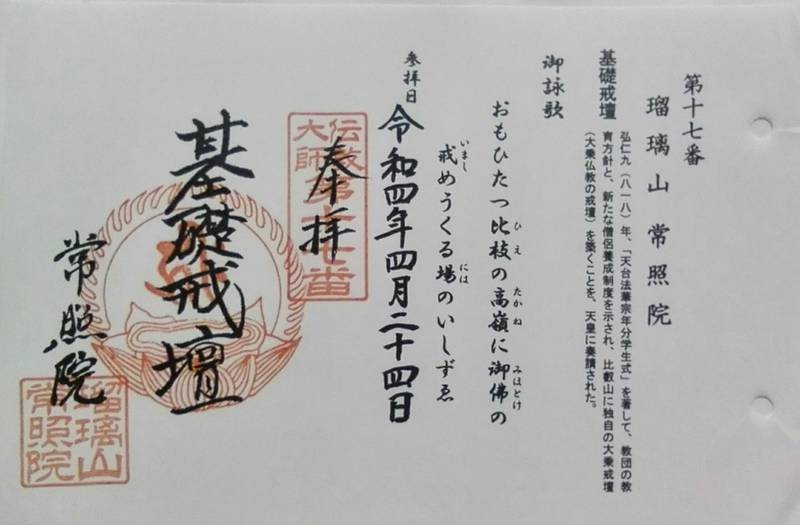 第十七番
瑠璃山 常照院
基礎戒壇
弘仁九（八一八）年、「天台法華宗年分学生式」を著して、教団の教
育方針と、新たな僧侶養成制度を示され、比叡山に独自の大乗戒壇
（大乗仏教の戒壇）を築くことを、天皇に奏請された。
御詠歌
おもひたつ比枝の高嶺に御佛の
ひえ たかね みほとけ
戒めうくる場のいしずゑ
いまし には
参拝日 令和四年四月二十四日
奉拝
伝教
大師第十七番
基礎戒壇
常照院
瑠璃山
常照院